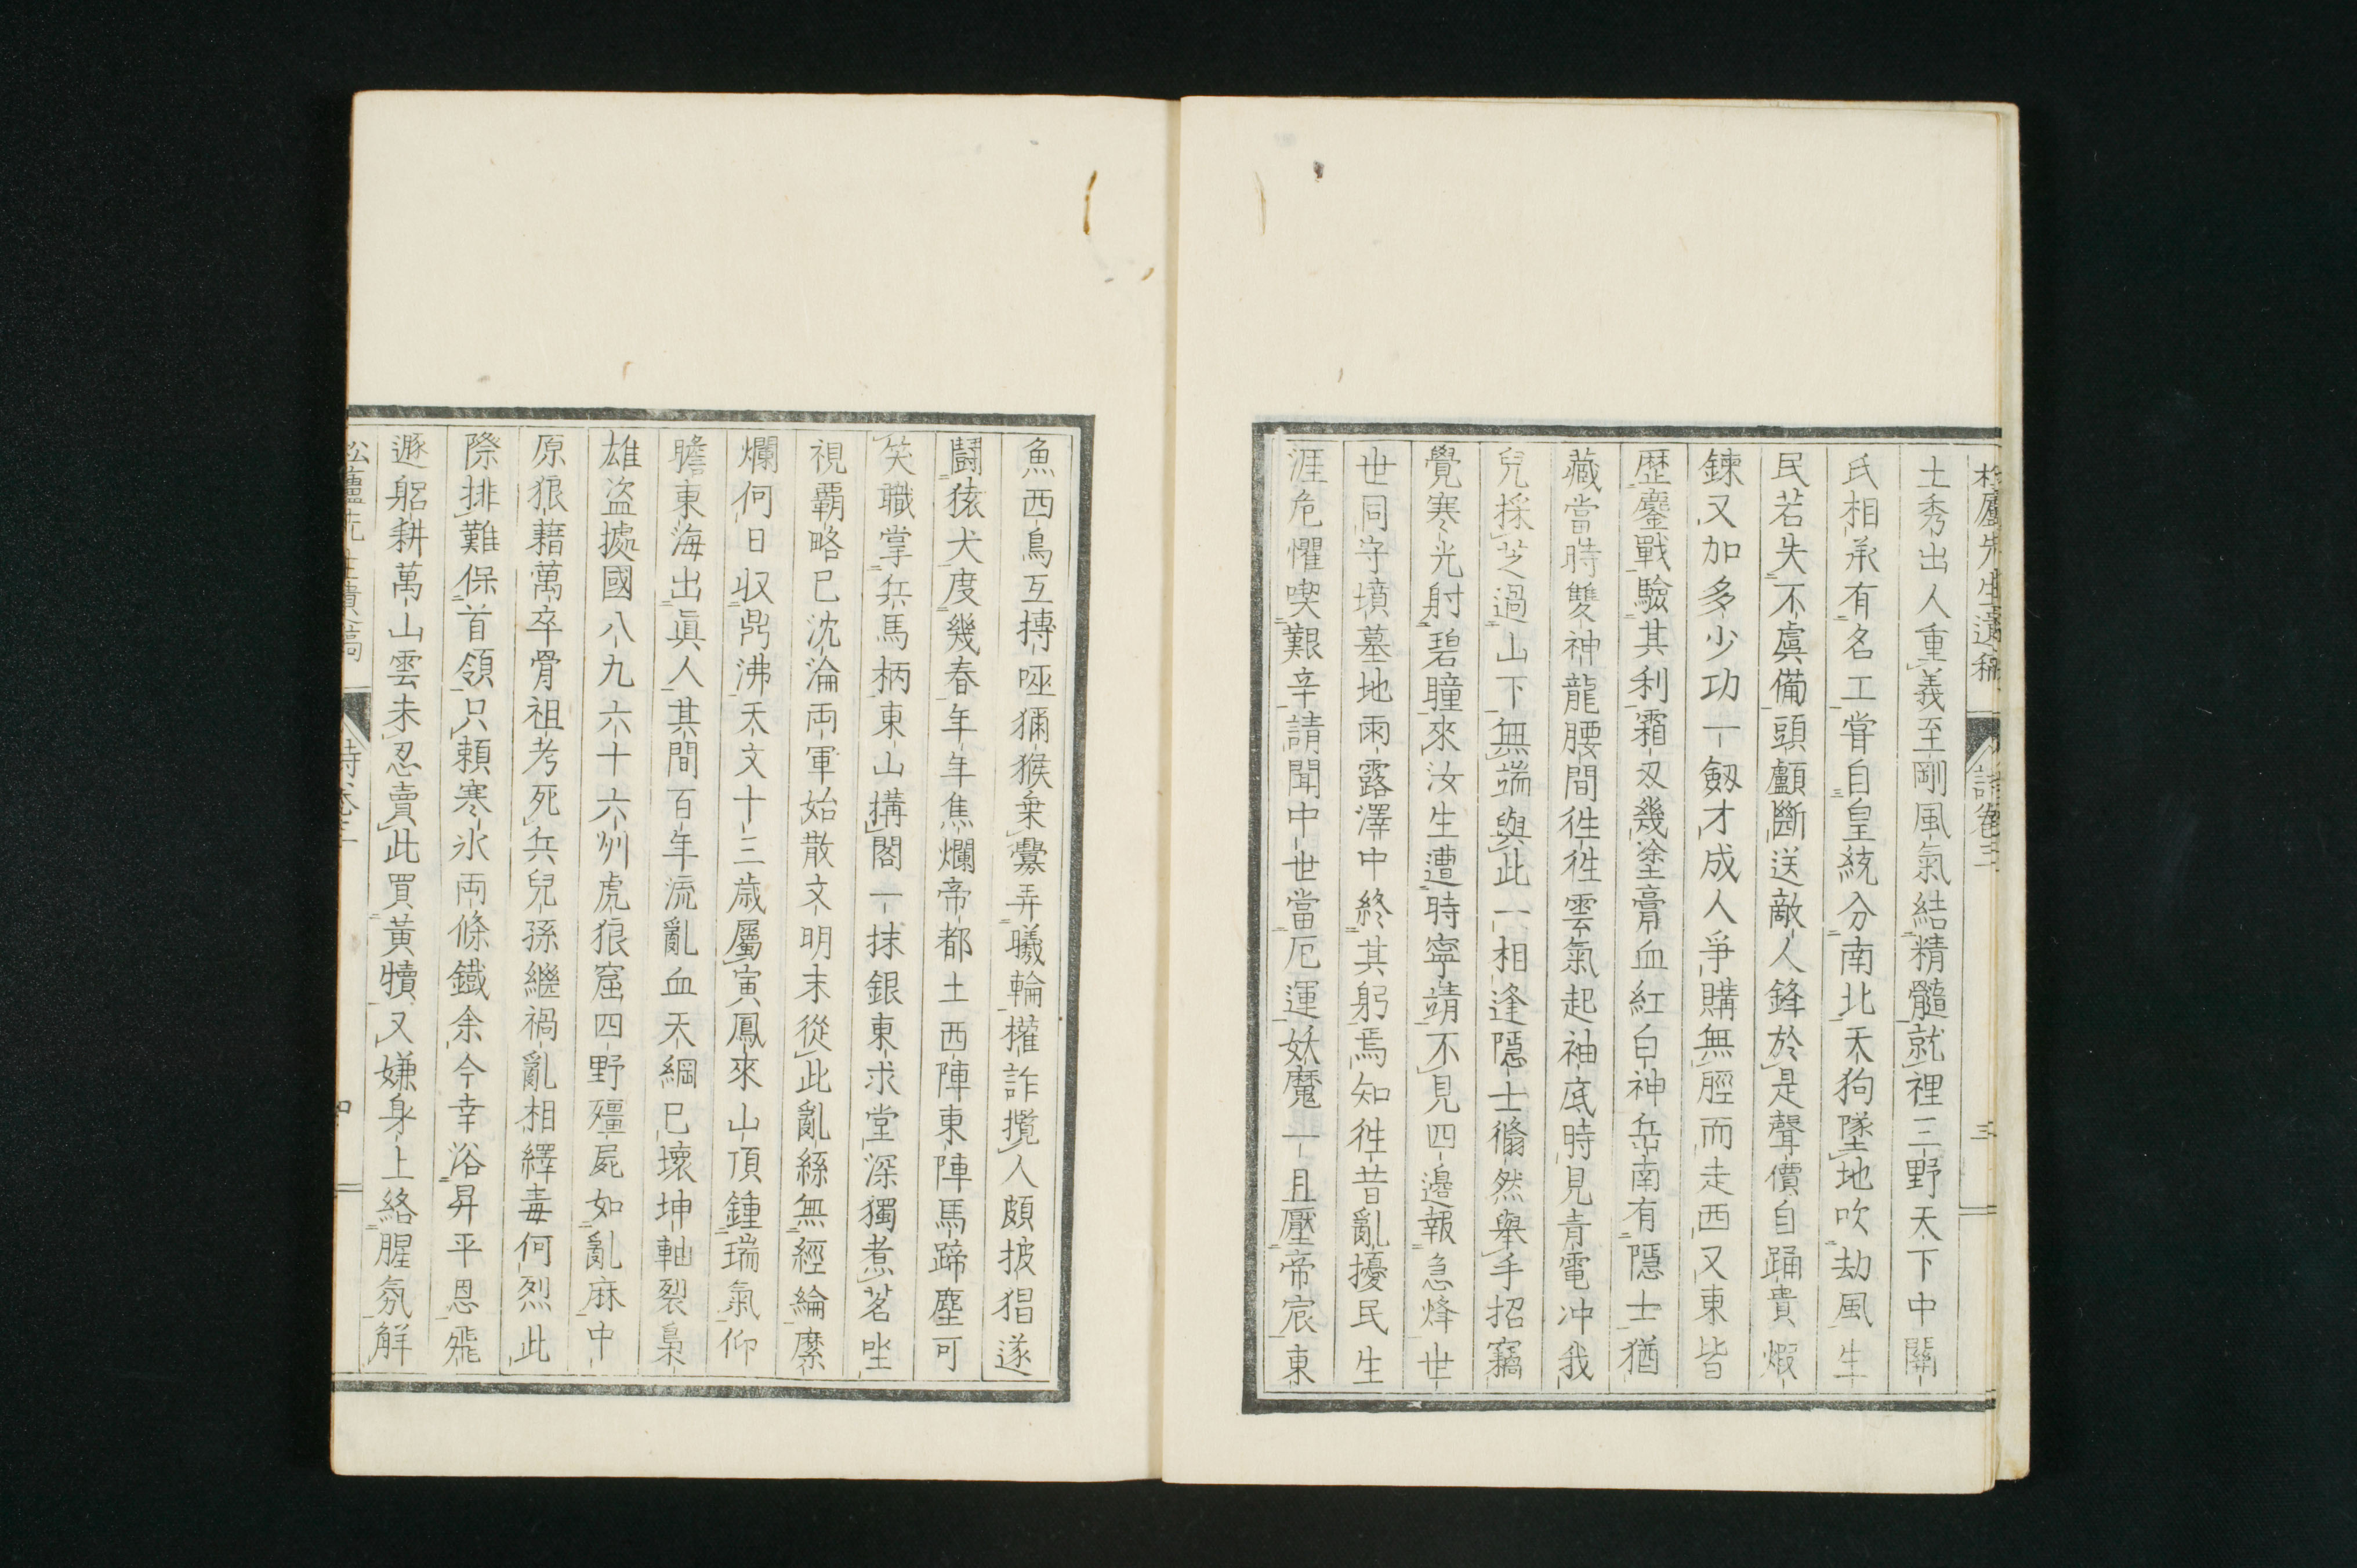 土秀出人重義至剛風氣結精髓就裡三野天下中關
氏相承有名工嘗自皇統分南北天狗墜地吹劫風生
民若失不虞備頭顱斷送敵人鋒於是聲價自踊貴煆
鍊又加多少功一劔才成人爭購無脛而走西又東皆
歴鏖戰驗其利霜刃幾塗膏血紅白神岳南有隱士猶
藏當時雙神龍腰間徃徃雲氣起袖底時見青電冲我
兒採芝過山下無端與此一相逢隱士翛然舉手招竊
覺寒光射碧瞳來汝生遭時寧靖不見四邊報急烽世
世同守墳墓地雨露澤中終其躬焉知徃昔亂擾民生
涯危懼喫艱辛請聞中世當厄運妖魔一且壓帝宸東
魚西鳥互摶噬獼猴乗釁弄曦輪權詐攬人頗披猖遂
鬪猿犬度幾春年年焦爛帝都土西陣東陣馬蹄塵可
笑職掌兵馬柄東山搆閣一抹銀東求堂深獨煮茗坐
視覇略已沈淪両軍始散文明末從此亂絲無經綸縻
爛何日収鼎沸天文十三歳屬寅鳳來山頂鍾瑞氣仰
瞻東海出眞人其間百年流亂血天綱已壞坤軸裂梟
雄盗據國八九六十六州虎狼窟四野殭屍如亂麻中
原狼藉萬卒骨祖考死兵兒孫繼禍亂相繹毒何烈此
際排難保首領只頼寒氷両條鐡余今幸浴昇平恩飛
遯躳耕萬山雲未忍賣此買黃犢又嫌身上絡腥氛觧